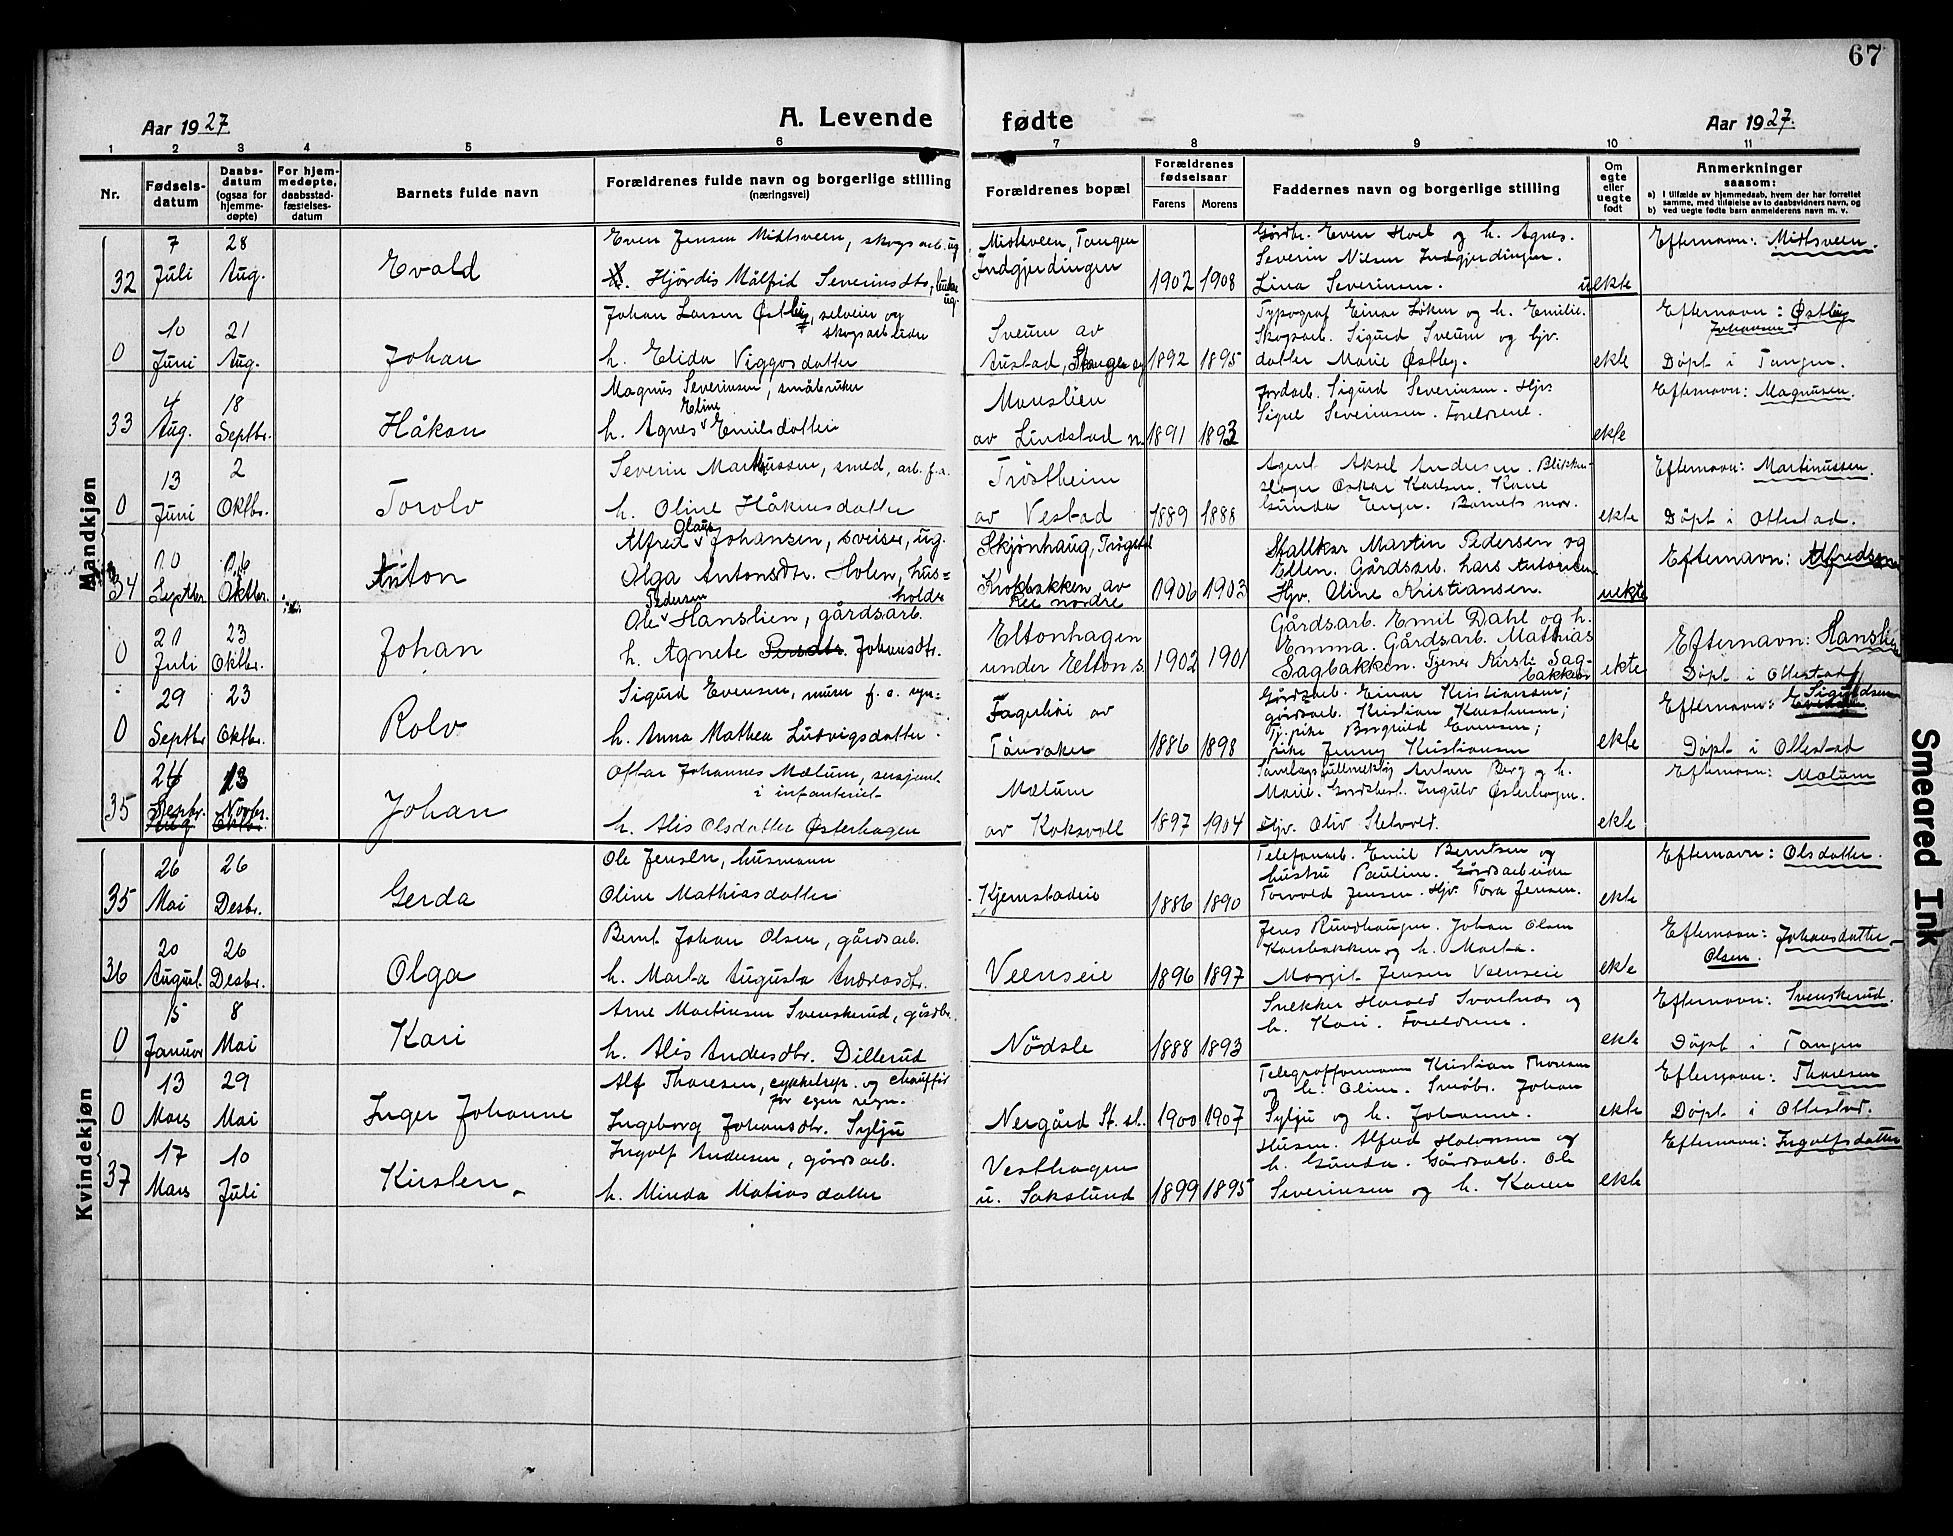 67
Aar 1927
A. Levende fødte
Aar 1927.
1 2 3 4 5 6 7 8 9 10 11
Nr.
Fødsels-
datum
Daabs-
datum
(ogsaa for
hjemme-
døpte)
For hjem-
medøpte,
daabsstad-
fæstelses-
datum
Barnets fulde navn
Forældrenes fulde navn og borgerlige stilling
(næringsvei)
Forældrenes bopæl
Forældrenes
fødselsaar
Farens
Morens
Faddernes navn og borgerlige stilling
Om
egte
eller
uegte
født
Anmerkninger
saasom:
a) I tilfælde av hjemmedaab, hvem der har forrettet
samme, med tilføielse av to daabsvidners navn, og
b) ved uegte fødte barn anmelderens navn m. v.
Mandkjøn
32
7
Juli
28
Aug.
Evald
Even Jensen Midtsveen, skogsarb. ug
Hjørdis Målfrid Severinsdtr,
ug.
Midtsveen, Tangen
Indgjerdingen
1902 1908
Gårdbr. Even Hoel og h. Agnes.
Severin Nilsen Indgjerdingen.
Lina Severinsen.
uekte
Efternavn: Midtsveen.
0
10
Juni
21
Aug.
Johan
Johan Larsen Østby, selveier og
skogsarbeider
h. Elida Viggosdatter
Sveum av
Austad, Stange
1892 1895
Typograf Einar Løken og h. Emilie.
Skogsarb. Sigurd Sveum og hjv.
datter Marie Østby.
ekte
Efternavn: Østby
Johansen
Døpt i Tangen.
33
4
Aug.
18
Septbr.
Håkon
Magnus Severinsen, småbruker
Eline
h. Agnes Emilsdatter
Monslien
av Lindstad n.
1891 1893
Jordarb. Sigurd Severinsen. Hjv.
Signe Severinsen. Foreldrene.
ekte
Efternavn: Magnusen.
0
13
Juni
2
Oktbr.
Torolv
Severin Martinussen, smed, arb. f.a.
h. Oline Håkensdatter
Trøstheim
av Vestad
1889 1888
Agent Aksel Andersen. Blikken-
slager Oskar Karlsen. Kone
Gunda Enger. Barnets mor.
ekte
Efternavn: Martinussen.
Døpt i Ottestad.
34
10
Septbr
16
Oktbr.
Anton
Olaus
Alfred Johansen, sveiser, ug.
Olga Antonsdtr. Holen, hus=
holdr
Skjønhaug, Trøgstad
Krokbakken av
Ree nordre
1906 1903
Stallkar Martin Pedersen og
Ellen. Gårdsarb. Lars Antonsen
Hjv. Oline Kristiansen.
uekte
Efternavn: Alfredsen
0
21
Juli
23
Oktbr.
Johan
Pedersen
Ole Hanslien, gårdsarb.
h. Agnete Persdtr. Johansdtr.
Eltonhagen
under Elton s.
1902 1901
Gårdsarb. Emil Dahl og h.
Emma. Gårdsarb. Mathias
Sagbakken. Tjener Kirsti Sag-
bakken
ekte
Efternavn: Hanslien
Døpt i Ottestad
0
29
Septbr
23
Oktbr.
Rolv
Sigurd Evensen, murer f. e. regn-
h. Anna Mathea Ludvigsdatter
Fagerlie av
Tønsaker
1886 1898
Gårdsarb. Einar Kristiansen;
gårdsarb. Kristian Karlsen;
Tj.pike Borghild Evensen;
pike Jenny Kristiansen
ekte
Efternavn: Sigurdsen
Døpt i Ottestad
35
Septbr.
Aug
13
Novbr.
Oktbr.
Johan
Ottar Johannes Mælum, sersjant
i infanteriet
h. Alis Olsdatter Østerhagen
Mælum
av Koksvoll
1897 1904
Anton Berg og h.
Marie. Gårdbest. Ingulv Østerhagen.
Hjv. Oliv
ekte
Efternavn: Mælum
Kvindekjøn
35
26
Mai
26
Desbr.
Gerda
Ole Jensen, husmann
Oline Mathiasdatter
Kjemstadeie
1886 1890
Telefonarb. Emil Berntsen og
hustru Pauline. Gårdsarbeider
Torvald Jensen. Hjv. Tora Jensen.
ekte
Efternavn: Olsdatter.
36
20
August
26
Desbr.
Olga
Bernt Johan Olsen, gårdsarb.
h. Marta Augusta Andreasdtr.
Veenseie
1896 1897
Jens Rundhaugen. Johan Olsen
Karsbakken og h. Marta.
Margit Jensen Veenseie
ekte
Efternavn: Johansdatter-
Olsen.
0
15
Januar
8
Mai
Kari
Arne Martinsen Svenskerud, gårdbr.
h. Alis Andersdtr. Dillerud
Nødsle
1888 1893
Snekker Harald Svartnes og
h. Kari. Foreldrene.
ekte
Efternavn: Svenskerud.
Døpt i Tangen
0
13
Mars
29
Mai
Inger Johanne
Alf Thoresen, cykkelrep. og chauffør
for egen regn.
Ingeborg Johansdtr. Sylju
Nergård St. st.
1900 1907
Telegrafformann Kristian Thoresen
og h. Oline. Småbr. Johan
Sylju og h. Johanne.
ekte
Efternavn: Thoresen
Døpt i Ottestad.
37
17
Mars
10
Juli
Kirsten
Ingolf Andersen, gårdsarb.
h. Minda Matiasdatter
Vesthagen
u. Sakslund
1899 1895
Husm. Alfred Halvorsen og
h. Gunda. Gårdsarb. Ole
Severinsen og h. Karen
ekte
Efternavn: Ingolfsdatter
Smeared Ink